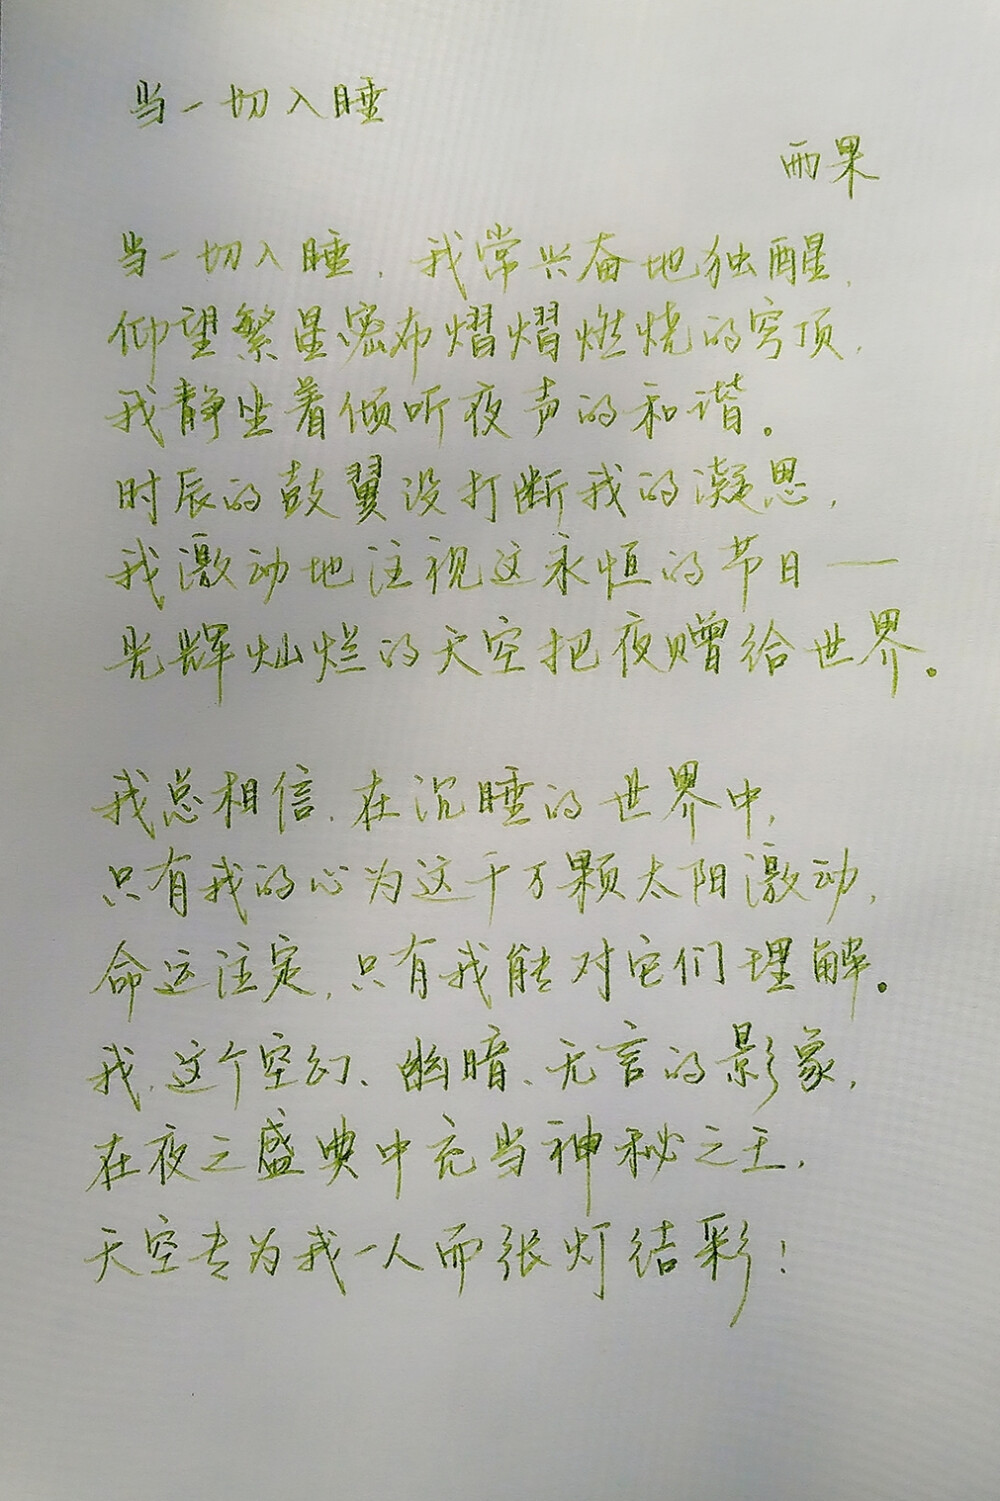 当一切入睡
雨果
当一切入睡，我常兴奋地独醒，
仰望繁星密布熠熠燃烧的穹顶，
我静坐着倾听夜声的和谐。
时辰的鼓翼没打断我的凝思，
我激动地注视这永恒的节日——
光辉灿烂的天空把夜赠给世界。
我总相信，在沉睡的世界中，
只有我的心为这千万颗太阳激动，
命运注定，只有我能对它们理解。
我，这个空幻、幽暗、无言的影象，
在夜之盛典中充当神秘之王，
天空专为我一人而张灯结彩！